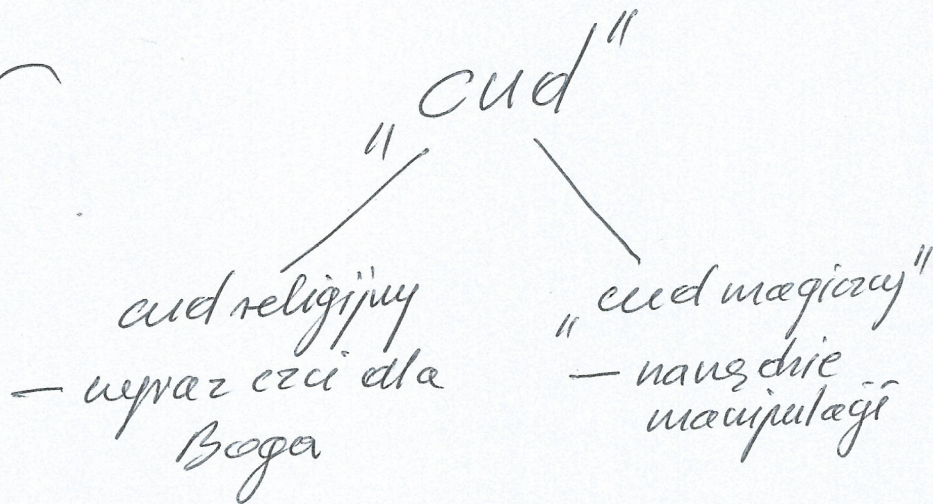 „cud”
cud religijny
– wyraz czci dla
Boga
„cud magiczny”
– narzędzie
manipulacji